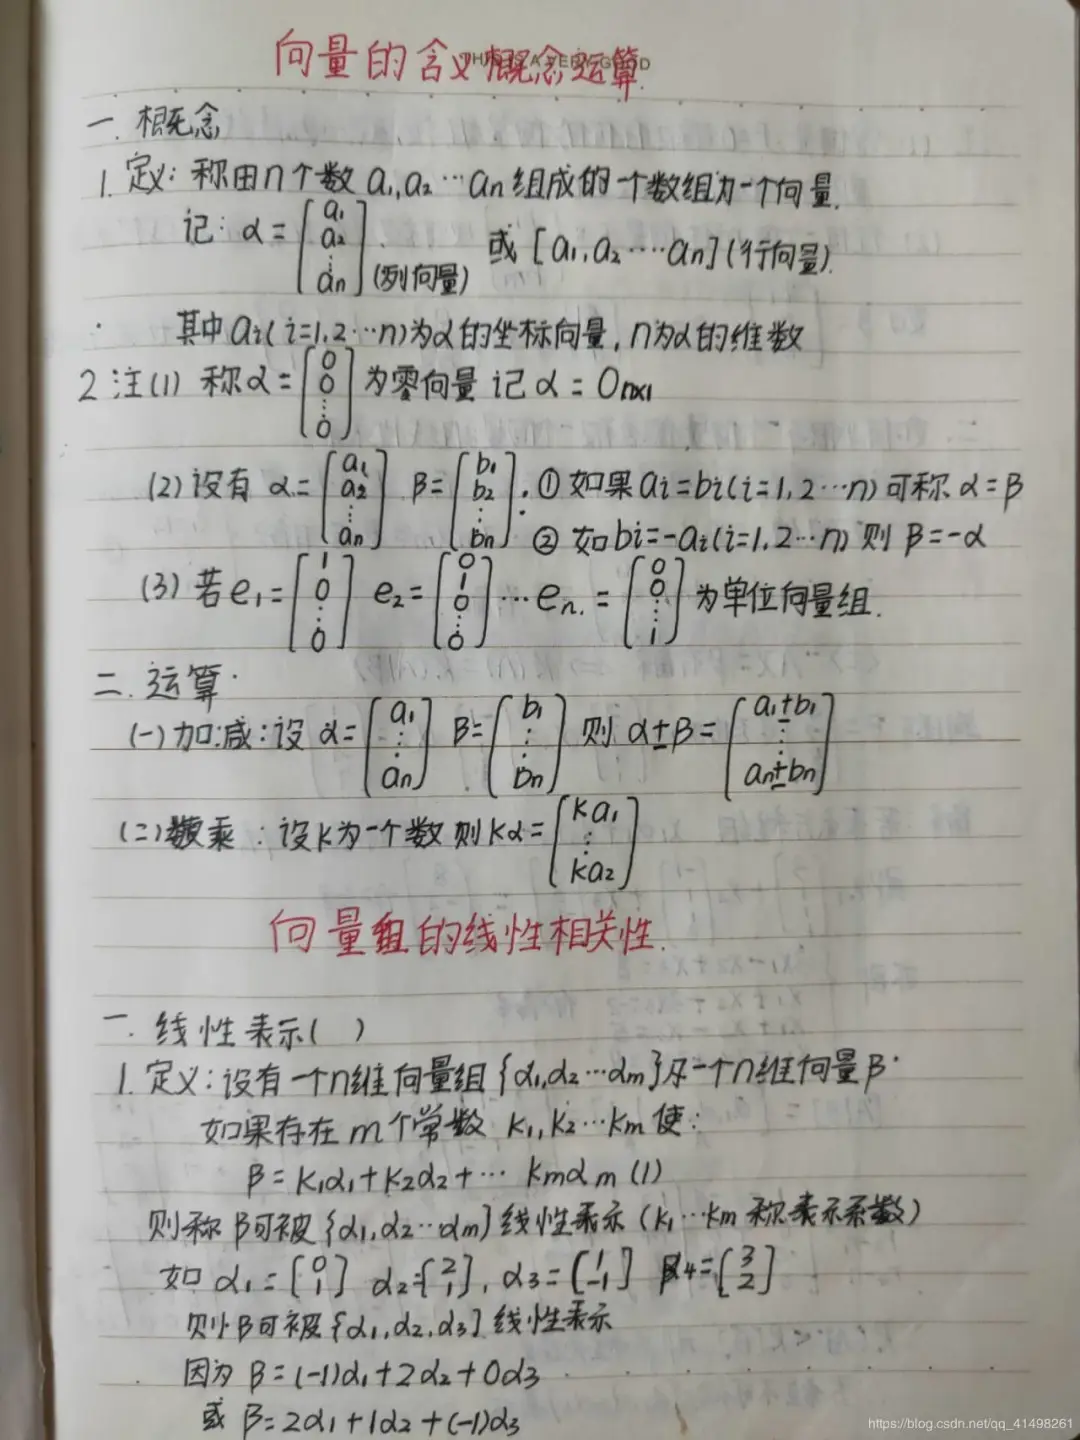 向量的含义概念运算.
一. 概念
1. 定义: 称由n个数 a₁,a₂…an 组成的一个数组为一个向量.
记: α = [a₁ a₂ ⋮ an] (列向量) 或 [a₁,a₂····an] (行向量).
其中 ai (i=1,2…n) 为α的坐标向量, n为α的维数
2 注(1) 称α = [0 0 ⋮ 0] 为零向量 记 α = 0n×1
(2) 设有 α = [a₁ a₂ ⋮ an] β = [b₁ b₂ ⋮ bn]. ① 如果 ai = bi (i=1,2…n) 可称 α = β
② 如 bi = -ai (i=1,2…n) 则 β = -α
(3) 若 e₁ = [1 0 ⋮ 0] e₂ = [0 1 0 ⋮ 0] … en. = [0 0 ⋮ 1] 为单位向量组.
二. 运算.
(一) 加.减: 设 α = [a₁ ⋮ an] β = [b₁ ⋮ bn] 则 α±β = [a₁±b₁ ⋮ an±bn]
(二) 数乘: 设k为一个数 则 kα = [ka₁ ⋮ ka₂]
向量组的线性相关性.
一. 线性表示( )
1. 定义: 设有一个n维向量组 {α₁,α₂…αm} 及一个n维向量 β.
如果存在 m个常数 k₁,k₂…km 使:
β = k₁α₁+k₂α₂+… kmαm (1)
则称 β可被 {α₁,α₂…αm} 线性表示 (k₁…km 称表示系数)
如 α₁ = [0 1] α₂ = [2 1], α₃ = [1 -1] β4 = [3 2]
则β可被 {α₁,α₂,α₃] 线性表示
因为 β = (-1)α₁+2α₂+0α₃
或 β = 2α₁+1α₂+(-1)α₃
https://blog.csdn.net/qq_41498261